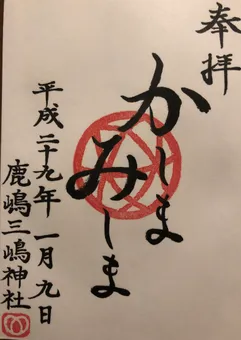 奉拝
かしま
みしま
平成二十九年一月九日
鹿嶋三嶋神社